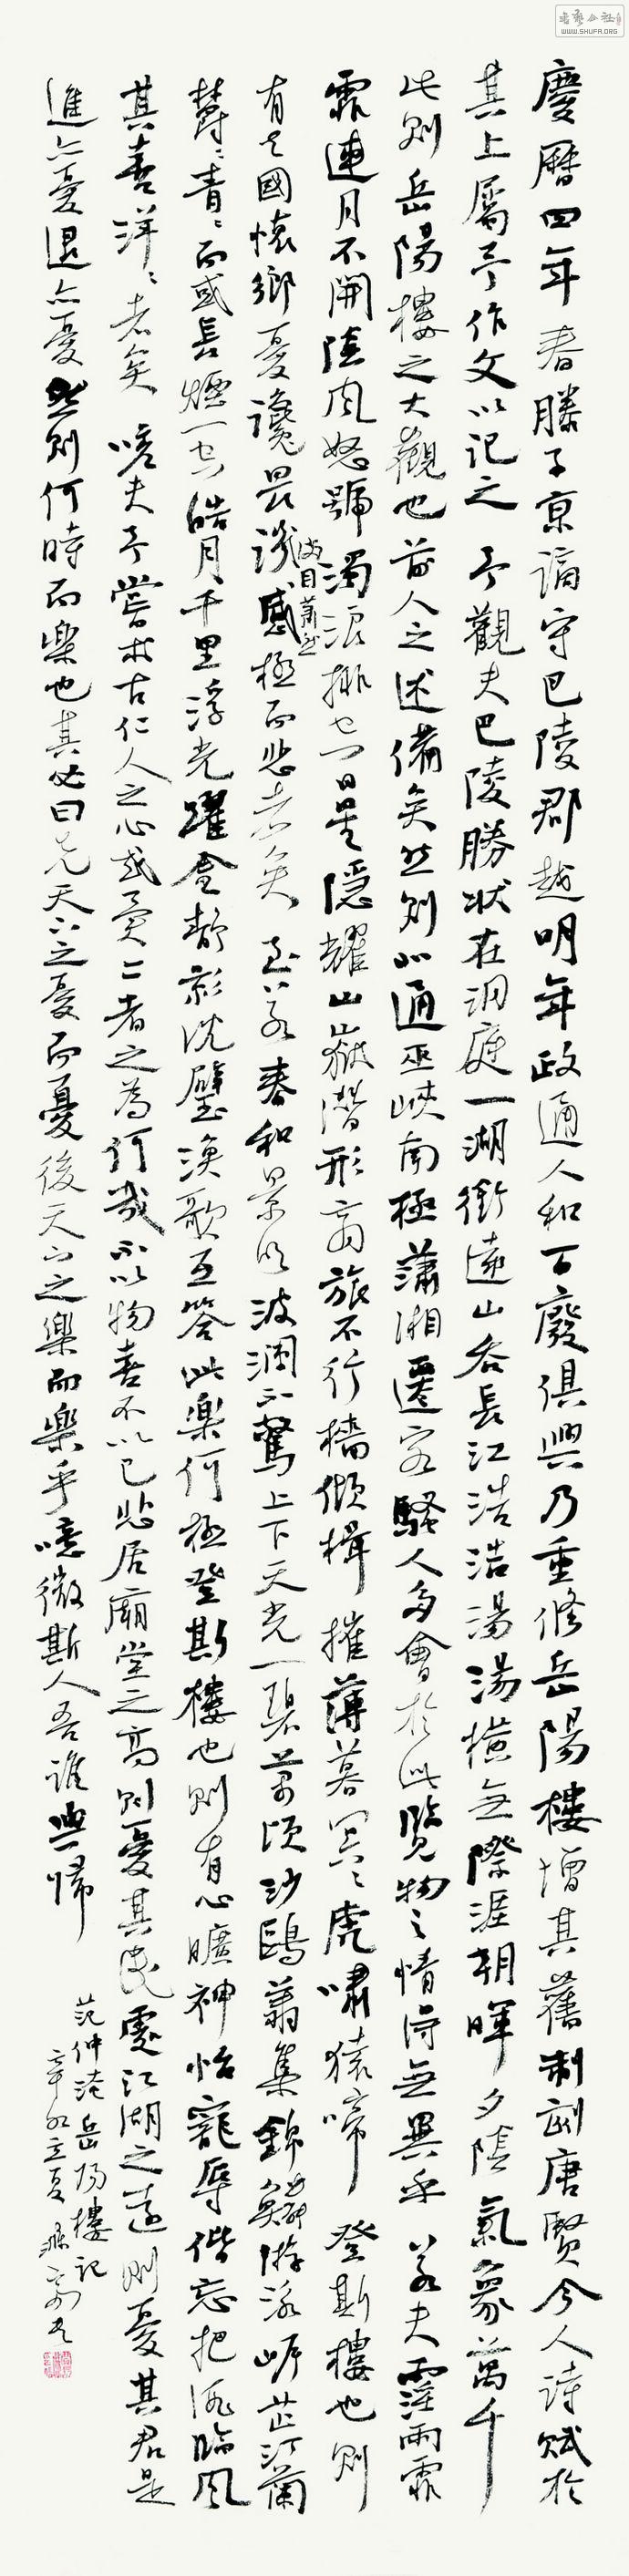 慶曆四年春滕子京謫守巴陵郡越明年政通人和百廢俱興乃重修岳陽樓增其舊制刻唐賢今人詩賦於
其上屬予作文以記之予觀夫巴陵勝狀在洞庭一湖銜遠山吞長江浩浩湯湯橫無際涯朝暉夕陰氣象萬千
此則岳陽樓之大觀也前人之述備矣然則北通巫峽南極瀟湘遷客騷人多會於此覽物之情得無異乎若夫霪雨霏
霏連月不開陰風怒號濁浪排空日星隱耀山嶽潛形商旅不行檣傾楫摧薄暮冥〻虎嘯猿啼登斯樓也則
有去國懷鄉憂讒畏譏滿目蕭然感極而悲者矣至若春和景明波瀾不驚上下天光一碧萬頃沙鷗翔集錦鱗游泳岸芷汀蘭
鬱〻青〻而或長煙一空皓月千里浮光躍金靜影沈璧漁歌互答此樂何極登斯樓也則有心曠神怡寵辱偕忘把酒臨風
其喜洋〻者矣嗟夫予嘗求古仁人之心或異二者之為何哉不以物喜不以己悲居廟堂之高則憂其民處江湖之遠則憂其君是
進亦憂退亦憂然則何時而樂也其必曰先天下之憂而憂後天下之樂而樂乎噫微斯人吾誰與歸
范仲淹岳陽樓記
辛卯立夏
WWW.SHUFA.ORG